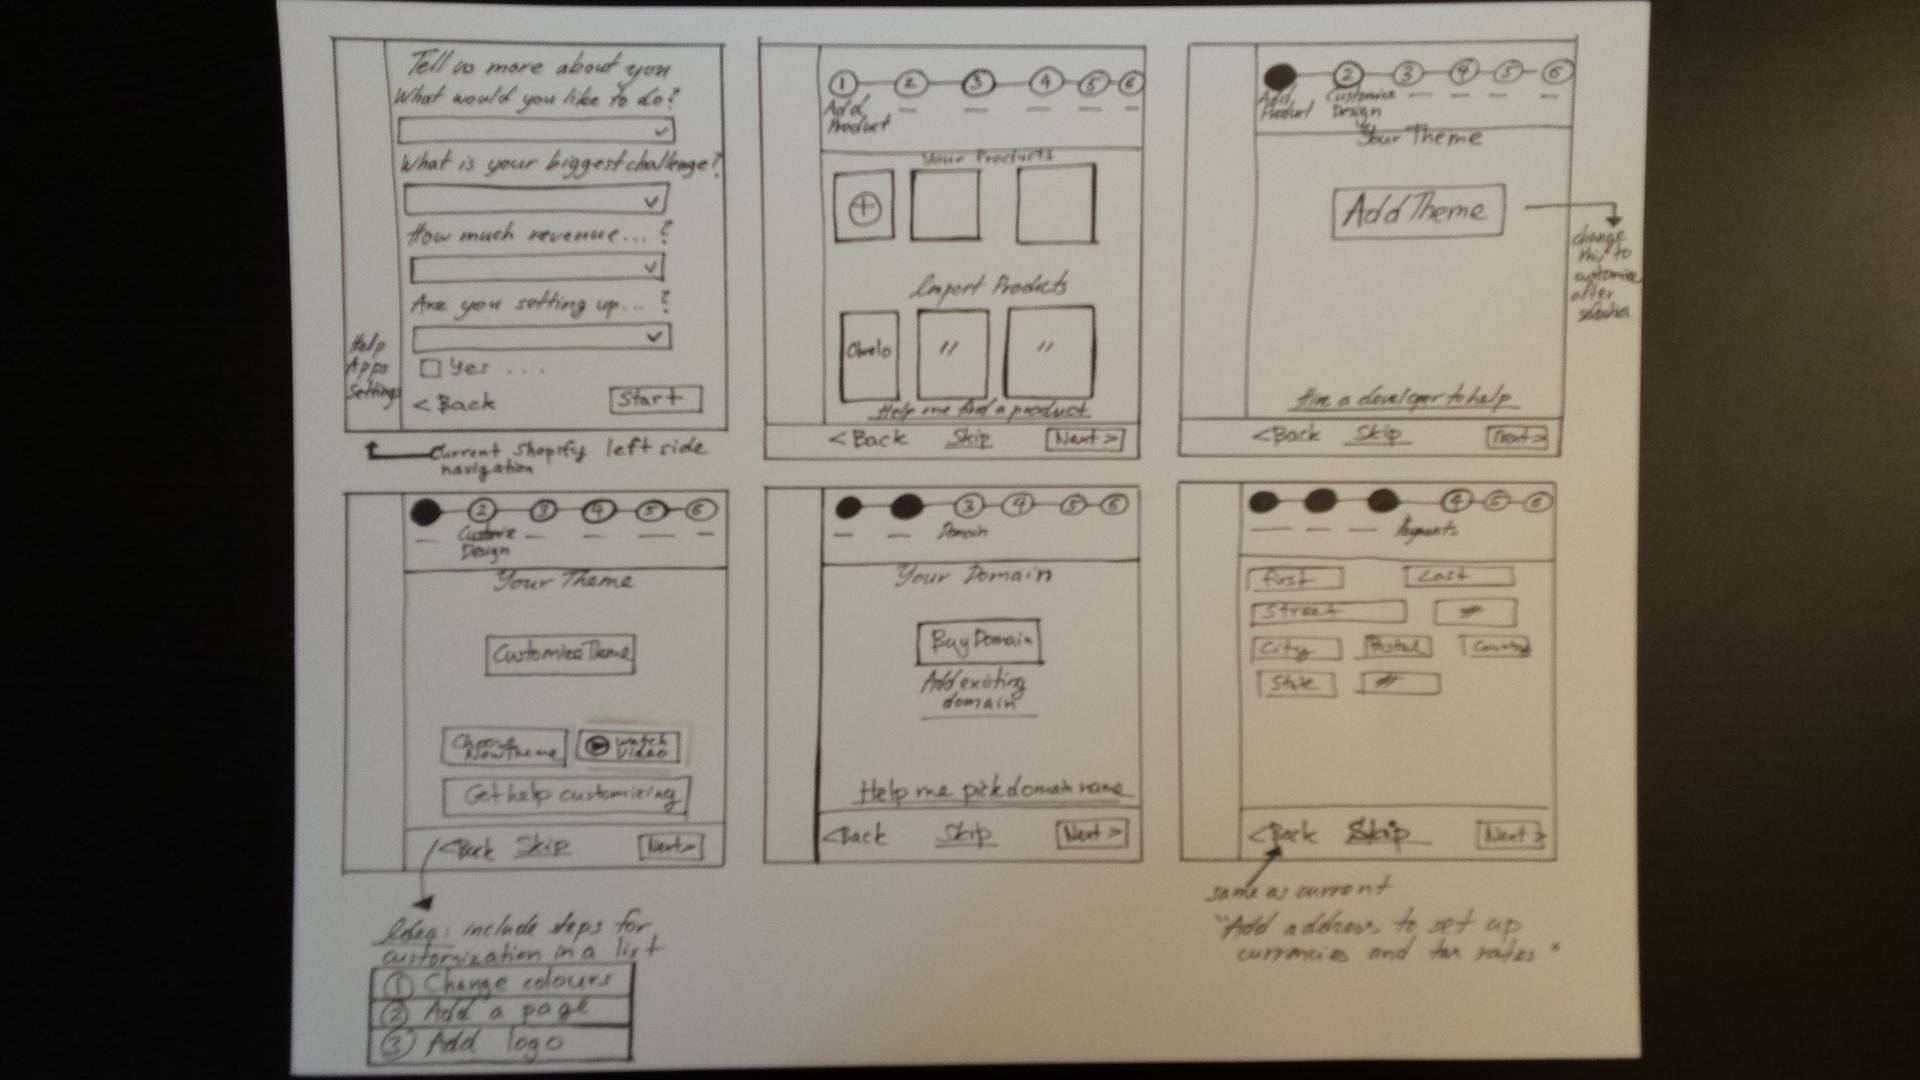 Tell us more about you
What would you like to do?
What is your biggest challenge?
How much revenue... ?
Are you setting up... ?
Yes ...
Help
Apps
Settings
< Back
Start
Current Shopify left side
navigation
1 2 3 4 5 6
Add
Product
Your Products
+
Import Products
Oberlo
"
"
Help me find a product
< Back Skip Next >
2 3 4 5 6
Add
Product
Customize
Design
Your Theme
Add Theme
change
this to
customize
after
Hire a developer to help
< Back Skip Next >
2 3 4 5 6
Customize
Design
Your Theme
Customize Theme
Choose
New Theme
Watch
Video
Get help customizing
< Back Skip Next >
Idea: include steps for
customization in a list
1 Change colours
2 Add a page
3 Add logo
3 4 5 6
Domain
Your Domain
Buy Domain
Add existing
domain
Help me pick domain name
< Back Skip Next >
4 5 6
Payments
First Last
Street #
City Postal Country
State #
< Back Skip Next >
same as current
"Add address to set up
currencies and tax rates"